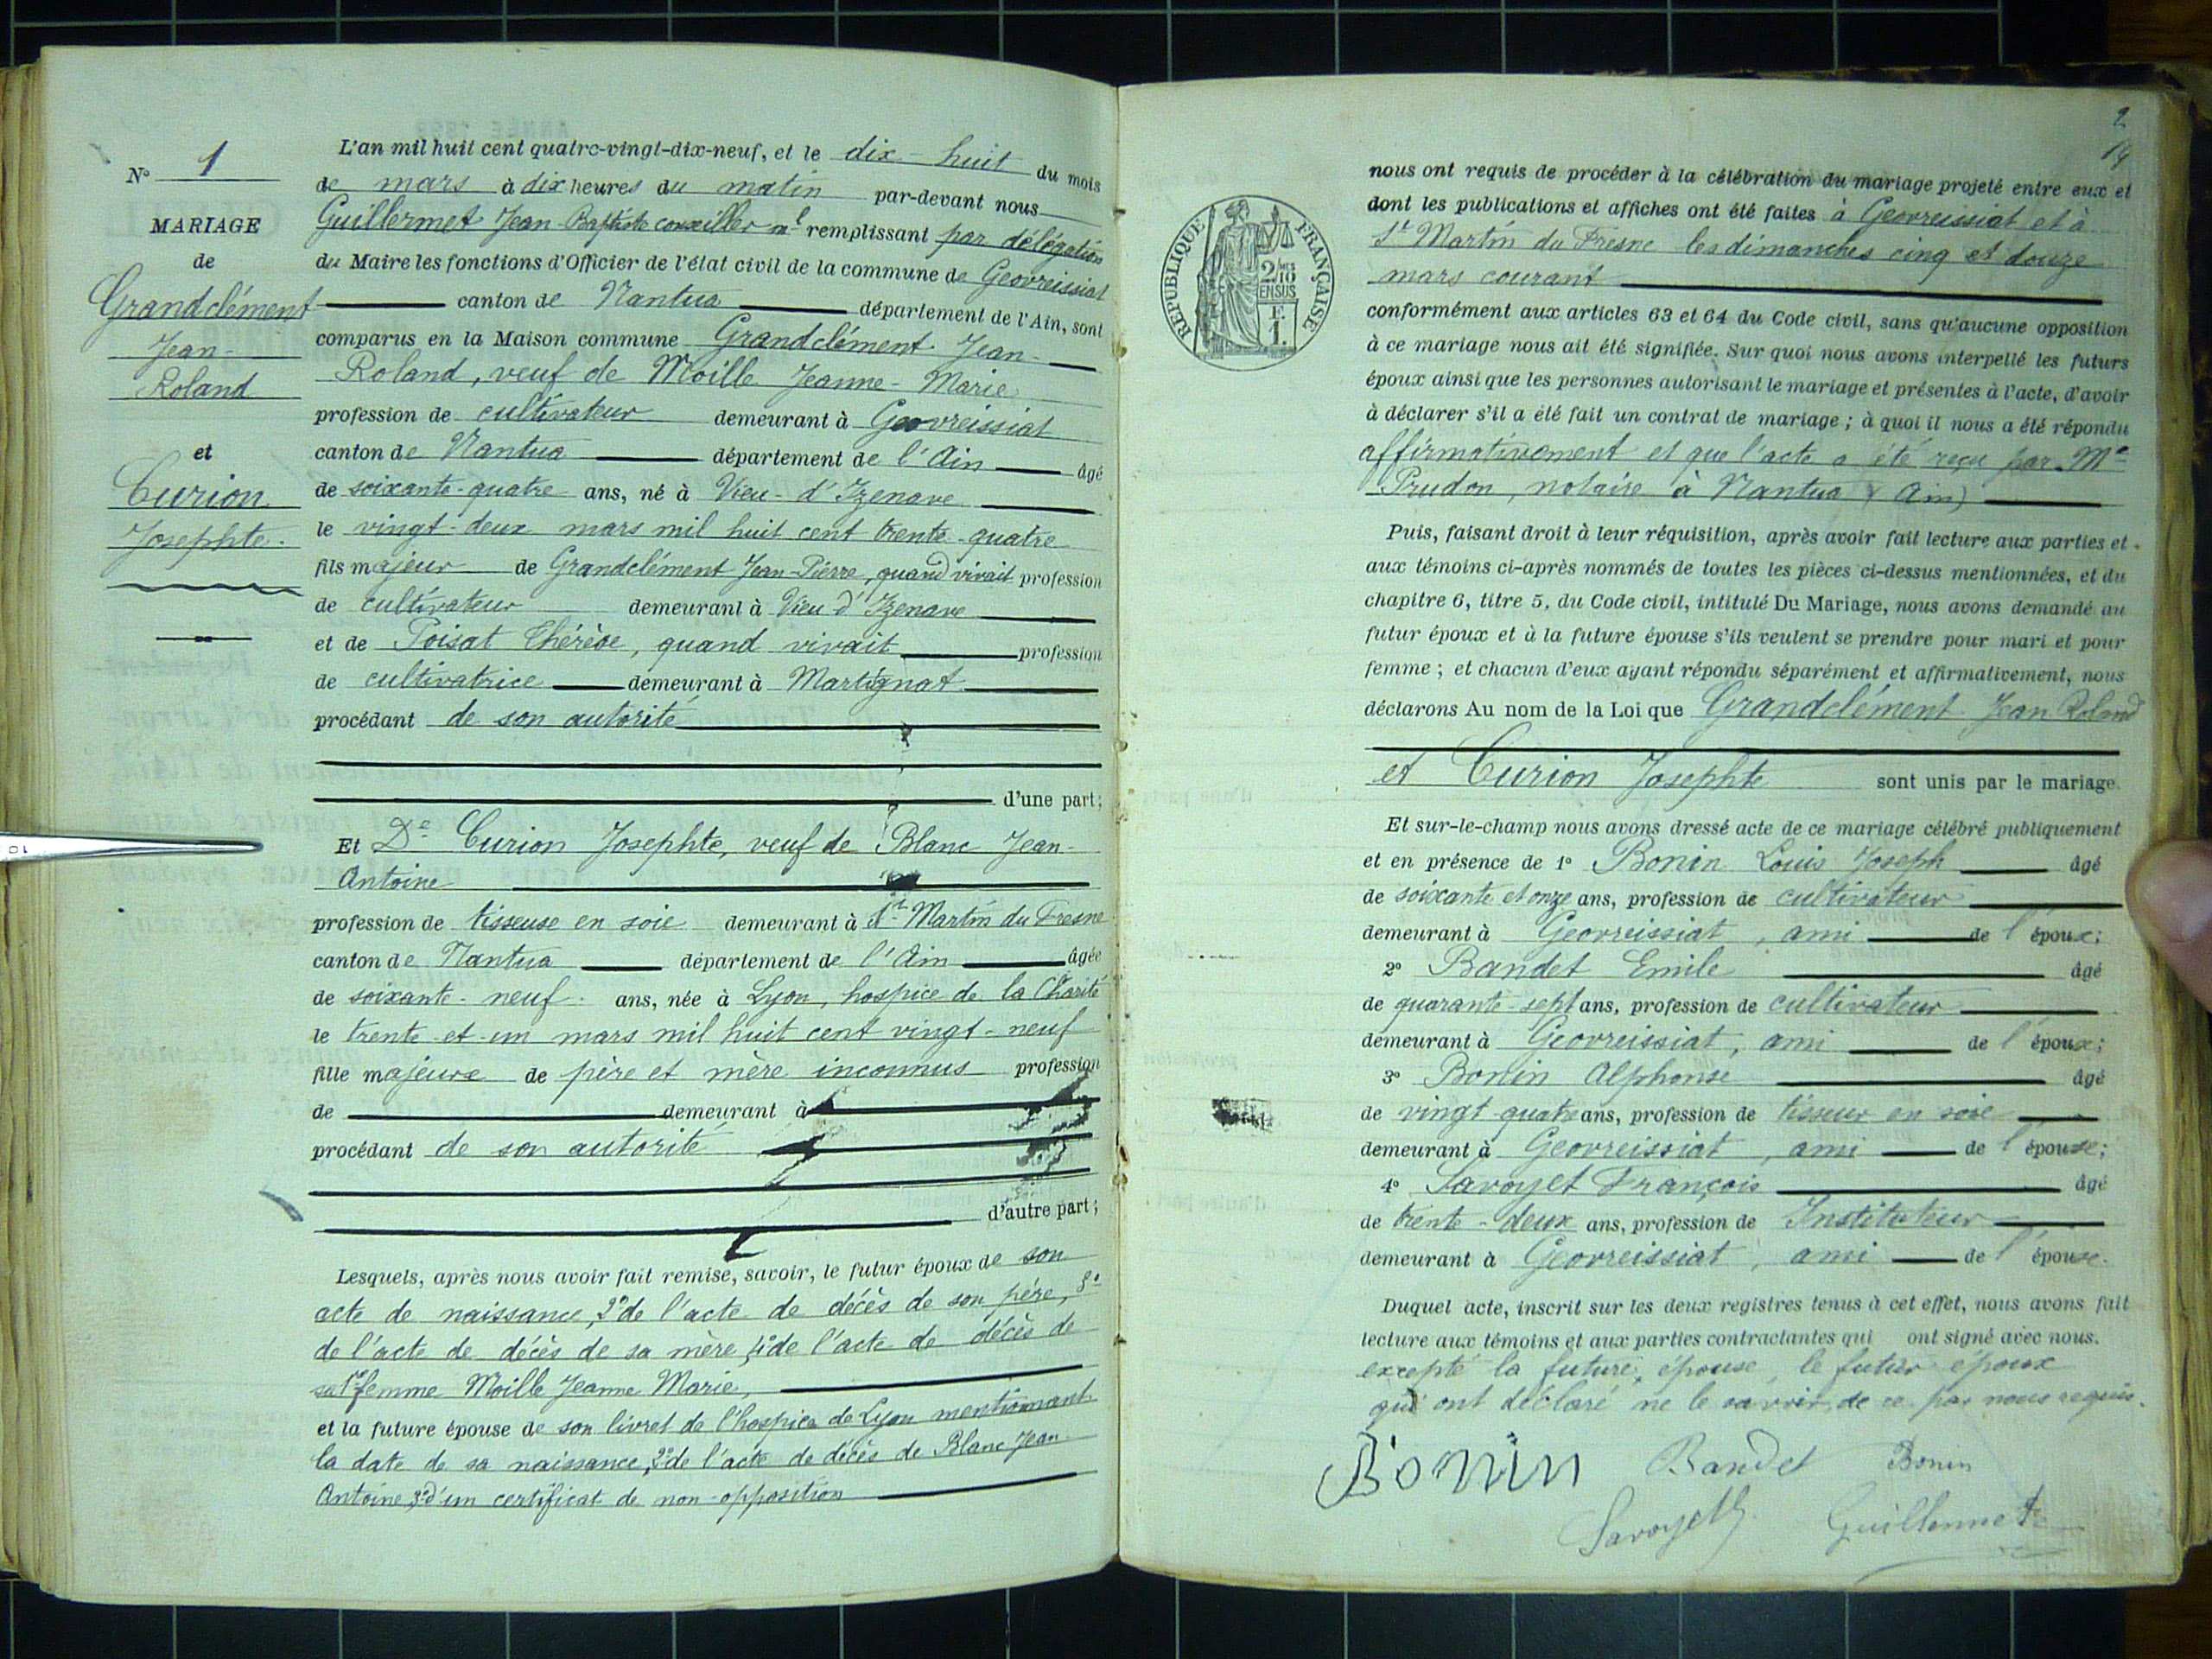 N° 1
MARIAGE
de
Grandclément
Jean-
Roland
et
Curion
Josephte.
L'an mil huit cent quatre-vingt-dix-neuf, et le dix-huit du mois
de mars à dix heures du matin par-devant nous
Guillermet Jean-Baptiste conseiller ml remplissant par délégation
du Maire les fonctions d'Officier de l'état civil de la commune de Geovreissiat
canton de Nantua département de l'Ain, sont
comparus en la Maison commune Grandclément Jean-
Roland, veuf de Moille Jeanne-Marie
profession de cultivateur demeurant à Geovreissiat
canton de Nantua département de l'Ain âgé
de soixante-quatre ans, né à Vieu-d'Izenave
le vingt-deux mars mil huit cent trente-quatre
fils majeur de Grandclément Jean-Pierre, quand vivait profession
de cultivateur demeurant à Vieu d'Izenave
et de Poisat Thérèse, quand vivait profession
de cultivatrice demeurant à Martignat
procédant de son autorité
d'une part;
Et De Curion Josephte, veuf de Blanc Jean-
Antoine
profession de tisseuse en soie demeurant à St Martin du Fresne
canton de Nantua département de l'Ain âgée
de soixante-neuf ans, née à Lyon, hospice de la Charité
le trente-et-un mars mil huit cent vingt-neuf
fille majeure de père et mère inconnus profession
de demeurant à
procédant de son autorité
d'autre part;
Lesquels, après nous avoir fait remise, savoir, le futur époux de son
acte de naissance, 2° de l'acte de décès de son père, 3°
de l'acte de décès de sa mère, 4° de l'acte de décès de
sa 1re femme Moille Jeanne Marie,
et la future épouse de son livret de l'hospice de Lyon mentionnant
la date de sa naissance, 2° de l'acte de décès de Blanc Jean-
Antoine, 3° d'un certificat de non-opposition
2
RÉPUBLIQUE FRANÇAISE
2/10
EN SUS
F.
1.
nous ont requis de procéder à la célébration du mariage projeté entre eux et
dont les publications et affiches ont été faites à Geovreissiat et à
St Martin du Fresne les dimanches cinq et douze
mars courant
conformément aux articles 63 et 64 du Code civil, sans qu'aucune opposition
à ce mariage nous ait été signifiée. Sur quoi nous avons interpellé les futurs
époux ainsi que les personnes autorisant le mariage et présentes à l'acte, d'avoir
à déclarer s'il a été fait un contrat de mariage; à quoi il nous a été répondu
affirmativement et que l'acte a été reçu par Me
Prudon, notaire à Nantua (Ain)
Puis, faisant droit à leur réquisition, après avoir fait lecture aux parties et
aux témoins ci-après nommés de toutes les pièces ci-dessus mentionnées, et du
chapitre 6, titre 5, du Code civil, intitulé Du Mariage, nous avons demandé au
futur époux et à la future épouse s'ils veulent se prendre pour mari et pour
femme; et chacun d'eux ayant répondu séparément et affirmativement, nous
déclarons Au nom de la Loi que Grandclément Jean Roland
et Curion Josephte sont unis par le mariage.
Et sur-le-champ nous avons dressé acte de ce mariage célébré publiquement
et en présence de 1° Bonin Louis Joseph âgé
de soixante et onze ans, profession de cultivateur
demeurant à Geovreissiat, ami de l'époux;
2° Bandet Emile âgé
de quarante-sept ans, profession de cultivateur
demeurant à Geovreissiat, ami de l'époux;
3° Bonin Alphonse âgé
de vingt-quatre ans, profession de tisseur en soie
demeurant à Geovreissiat, ami de l'épouse;
4° Savoyet François âgé
de trente-deux ans, profession de Instituteur
demeurant à Geovreissiat, ami de l'épouse.
Duquel acte, inscrit sur les deux registres tenus à cet effet, nous avons fait
lecture aux témoins et aux parties contractantes qui ont signé avec nous.
excepté la future épouse, le futur époux
qui ont déclaré ne le savoir, de ce par nous requis.
Bonin Bandet Bonin
Savoyet Guillermet